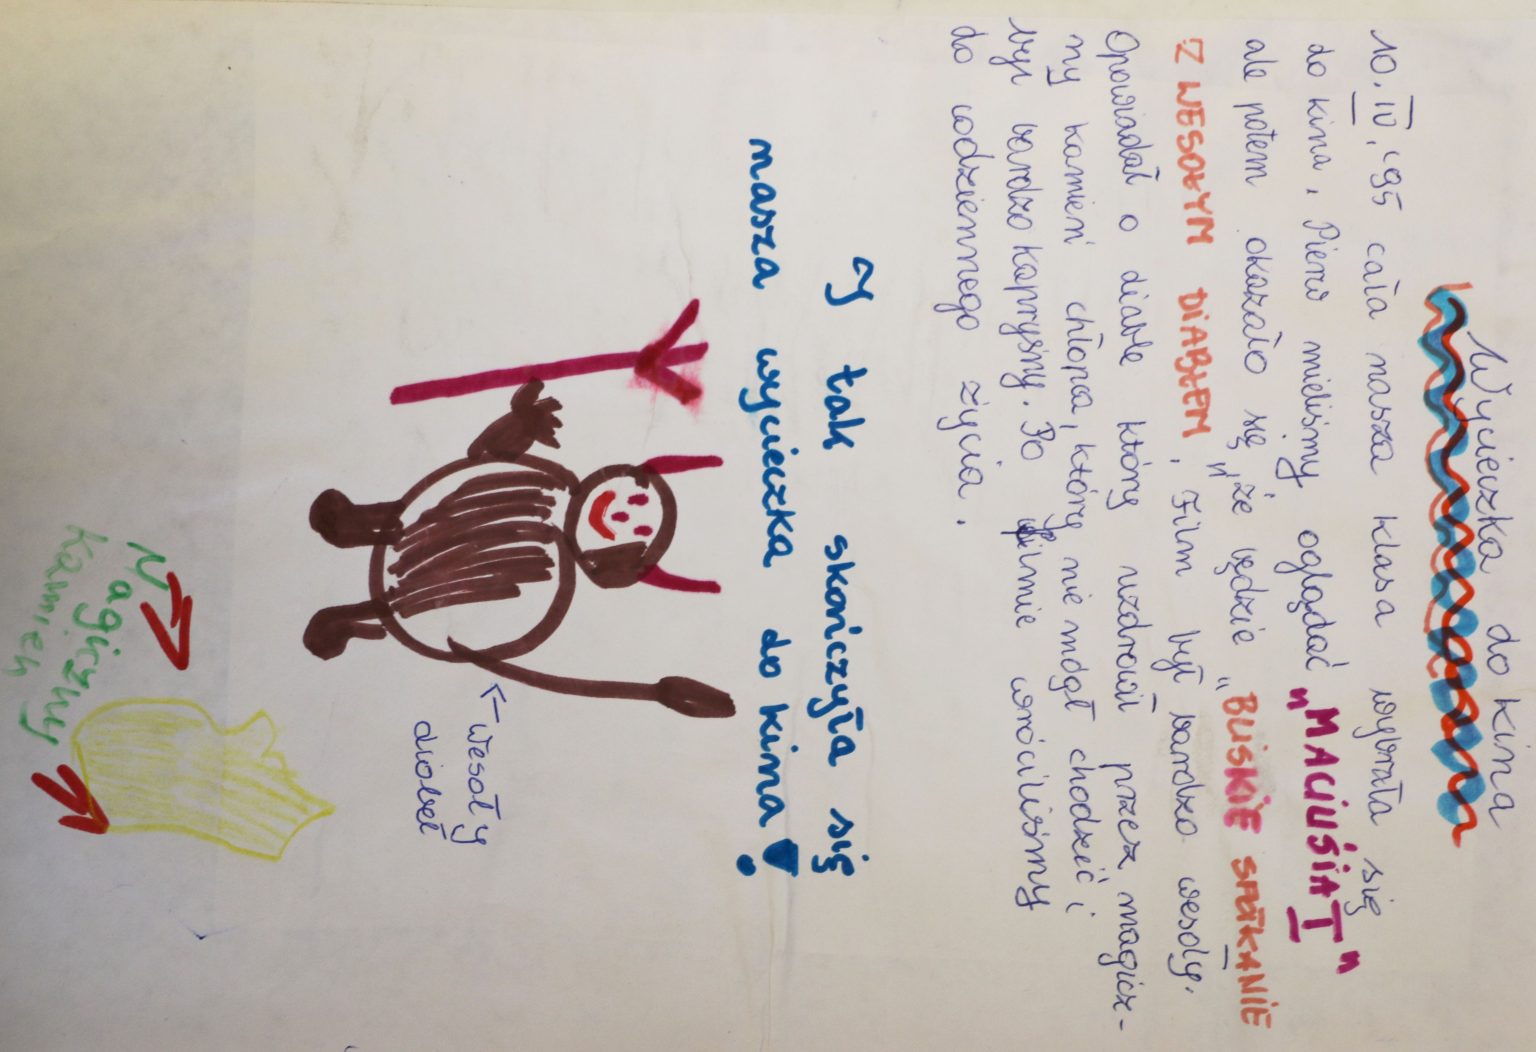 Wycieczka do kina
10. IV. '95 cała nasza klasa wybrała się
do kina. Pierw mieliśmy oglądać "MACIUSIA I"
ale potem okazało się, że będzie "BLISKIE SPOTKANIE
Z WESOŁYM DIABŁEM". Film był bardzo wesoły.
Opowiadał o diable który uzdrowił przez magicz-
ny kamień chłopca, który nie mógł chodzić i
był bardzo kapryśny. Po filmie wróciliśmy
do codziennego życia.
I tak skończyła się
nasza wycieczka do kina!
←wesoły
diabeł
Magiczny
kamień